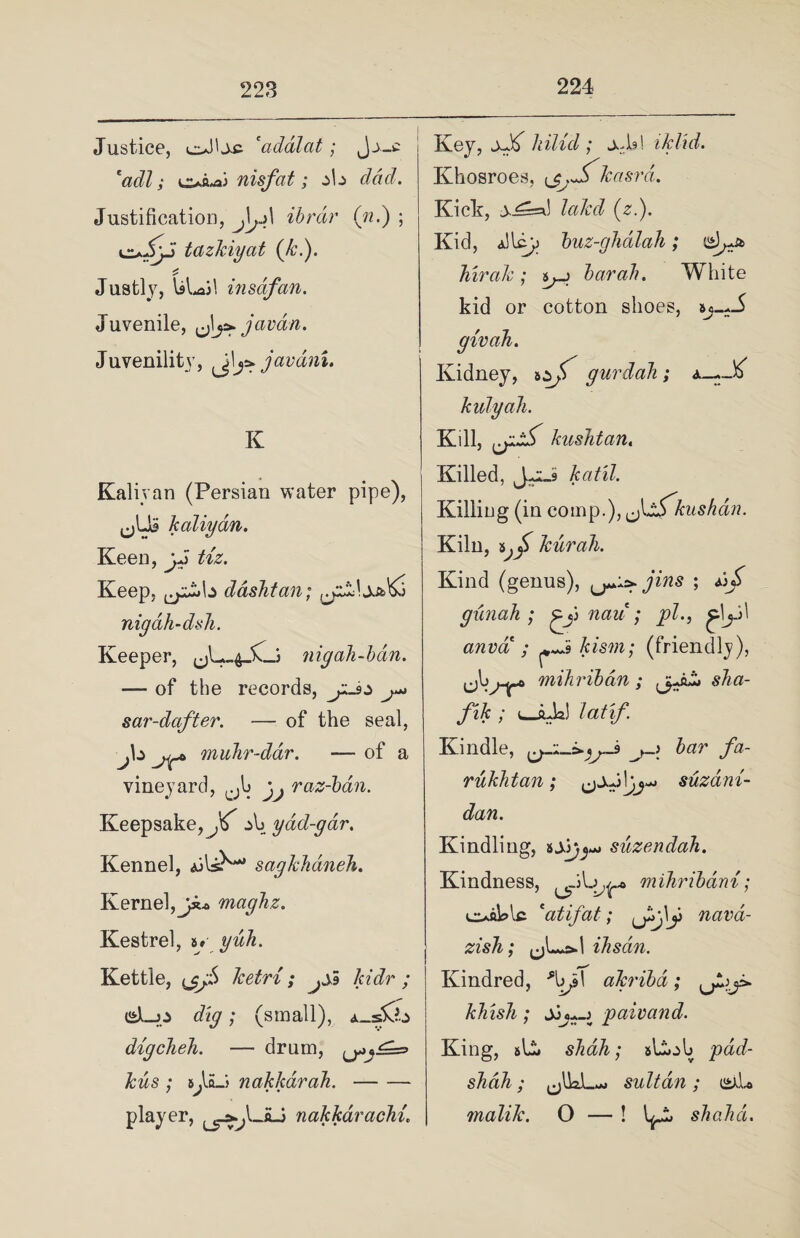 223
Justice, عدالت 'adálat; عدل
'adl; نصفت nisfat; داد dád.
Justification, ابرار ibrár (n.);
تزکیت tazkiyat (k.).
Justly, انصافاً insáfan.
Juvenile, جوان javán.
Juvenility, جوانی javání.
K
Kaliyan (Persian water pipe),
قلیان kaliyán.
Keen, تیز tíz.
Keep, داشتن dáshtan; نگاهداشتن
nigáh-dsh.
Keeper, نگهبان nigah-bán.
— of the records, سر دفتر
sar-dafter. — of the seal,
مهر دار muhr-dár. — of a
vineyard, رز بان raz-bán.
Keepsake, یاد گار yád-gár.
Kennel, سگخانه sagkháneh.
Kernel, مغز maghz.
Kestrel, یوه yúh.
Kettle, کتری ketrí; قدر kidr;
دیگ díg; (small), دیگچه
dígcheh. — drum, کوس
kús; نقاره nakkárah. — —
player, نقارچی nakkárachí.
224
Key, کلید kilíd; اقلید iklíd.
Khosroes, کسری kasrá.
Kick, لکد lakd (z.).
Kid, بزغاله buz-ghálah; هیرك
hírak; بره barah. White
kid or cotton shoes, گیوه
gívah.
Kidney, گرده gurdah; کلیه
kulyah.
Kill, کشتن kushtan.
Killed, قتیل katíl.
Killing (in comp.), کشان kushán.
Kiln, کوره kúrah.
Kind (genus), جنس jins; گونه
gúnah; نوع nau'; pl., انواع
anvá'; قسم kism; (friendly),
مهربان mihribán; شفیق sha-
fík; لطیف latíf.
Kindle, بر فروختن bar fa-
rúkhtan; سوزانیدن súzání-
dan.
Kindling, سوزنده súzendah.
Kindness, مهربانی mihribání;
عاطفت 'atifat; نوازش navá-
zish; احسان ihsán.
Kindred, اقرباء akribá; خویش
khísh; پیوند paivand.
King, شاه sháh; پادشاه pád-
sháh; سلطان sultán; ملك
malik. O — ! شها shahá.